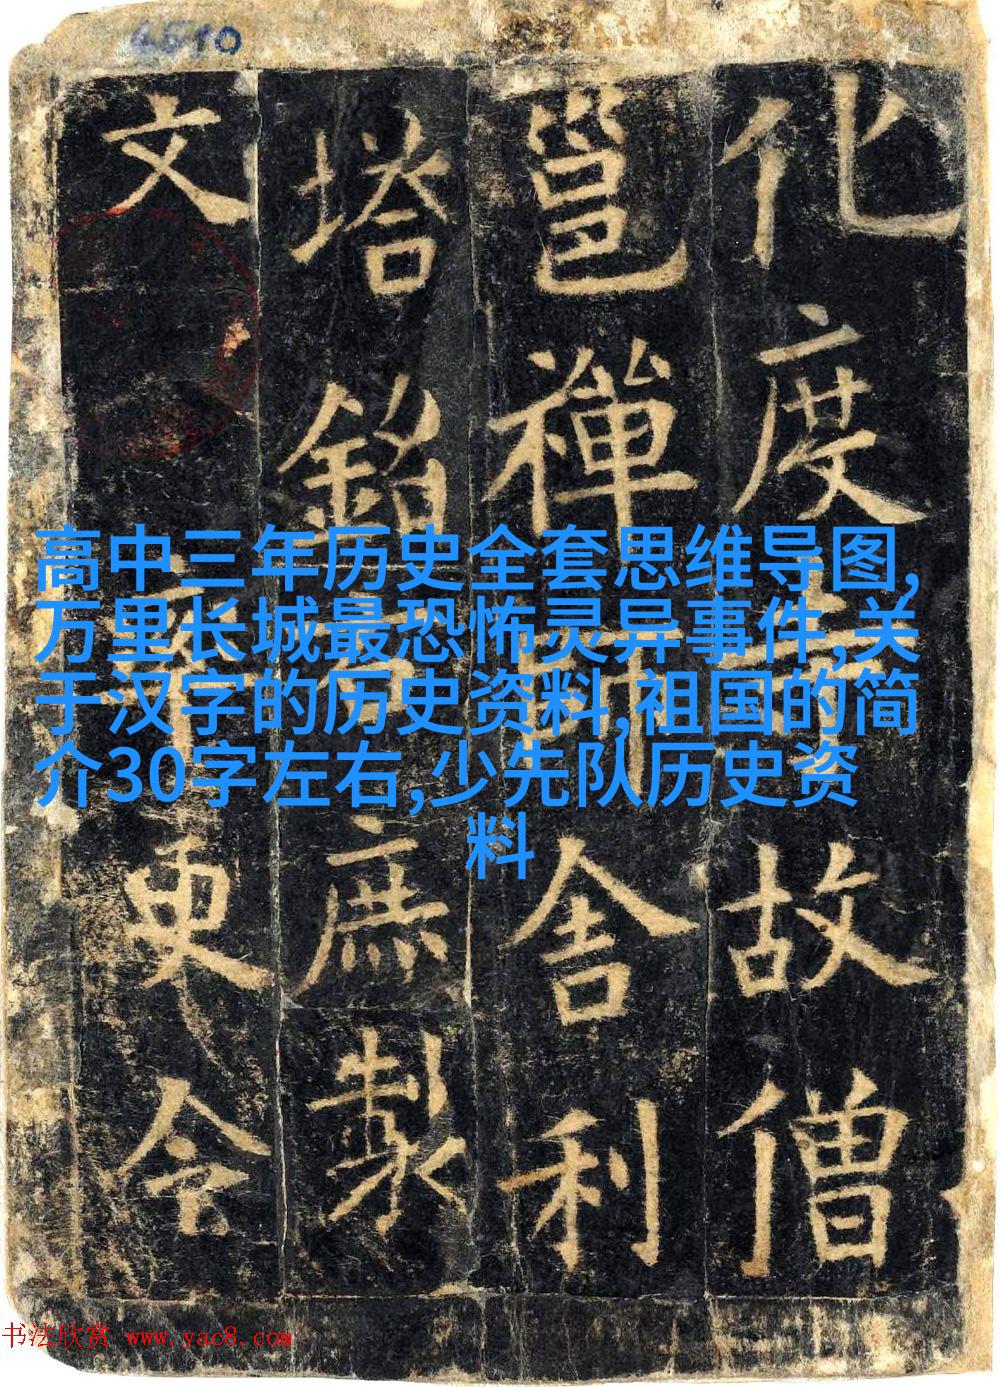 高中三年历史全套思维导图,
万里长城最恐怖灵异事件,关
于汉字的历史资料,祖国的简
介30字左右,少先队历史资
料
化度故僧
邕禪舍利
塔銘庶製
文更令
书法欣赏 www.yac8.com